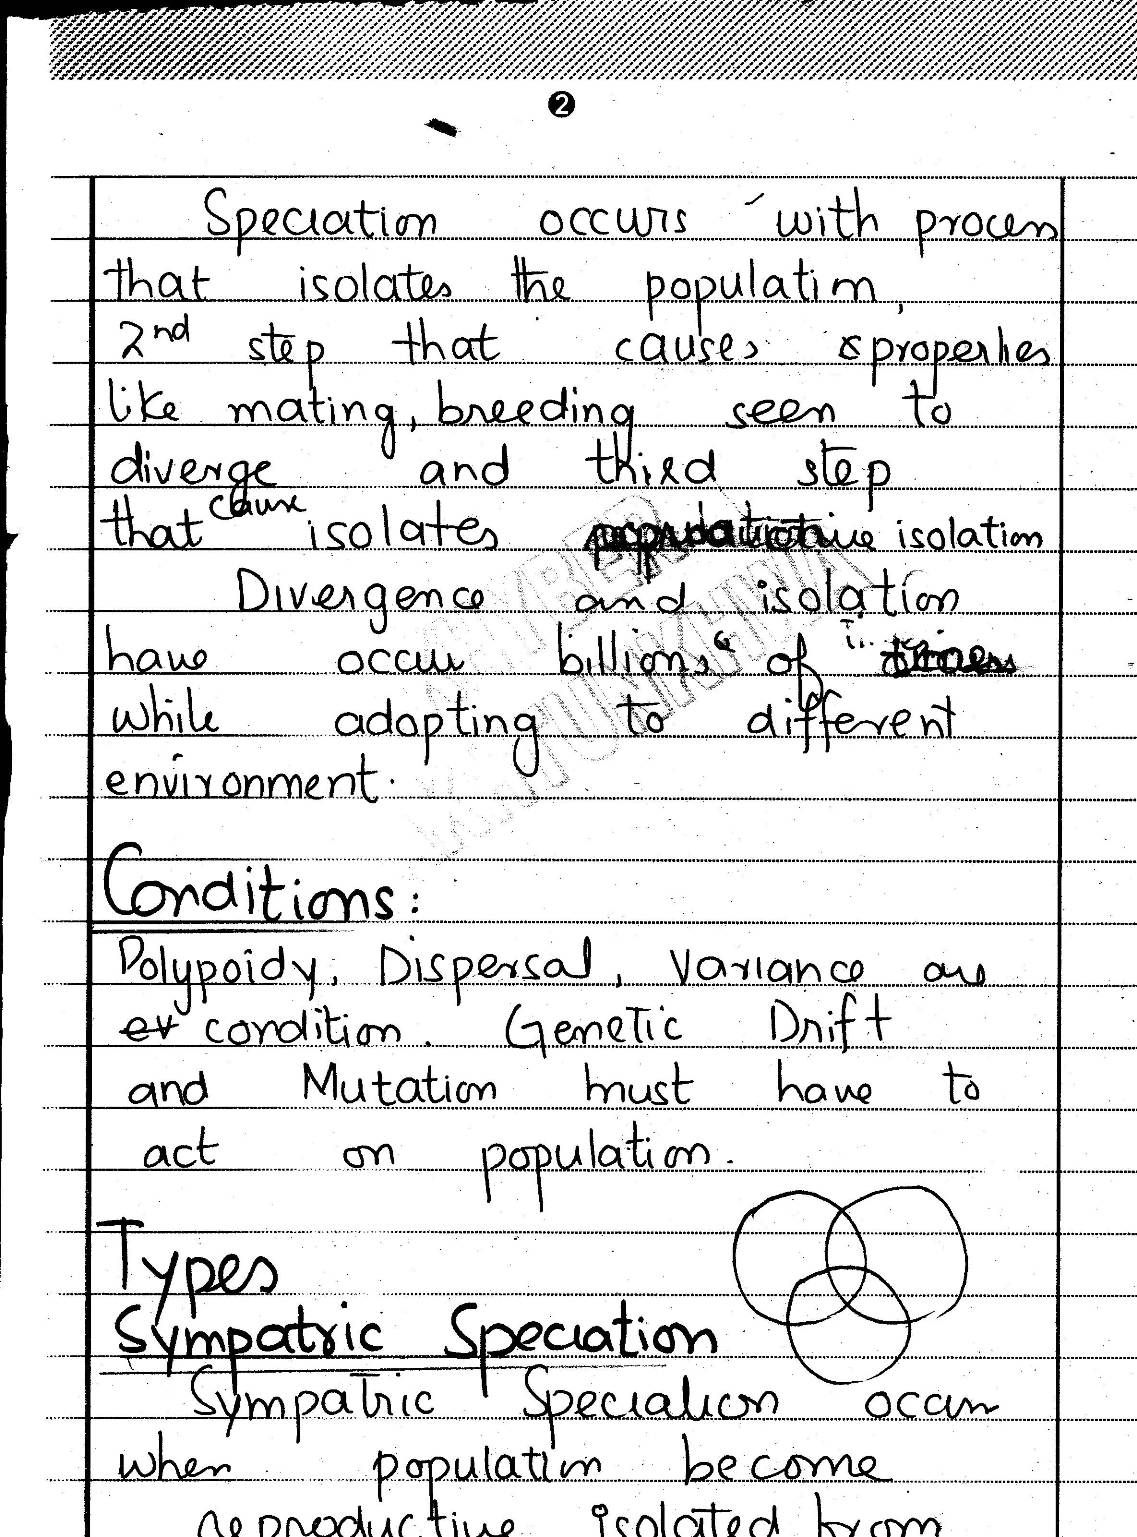 2
Speciation occurs with process
that isolates the population,
2nd step that causes properties
like mating, breeding seen to
diverge and third step
that cause isolates isolation
Divergence and isolation
have occur billions of
while adopting to different
environment.
Conditions:
Polypoidy, Dispersal, Variance are
ev condition. Genetic Drift
and Mutation must have to
act on population.
Types
Sympatric Speciation
Sympatric Speciation occur
when population become
reproductive isolated from